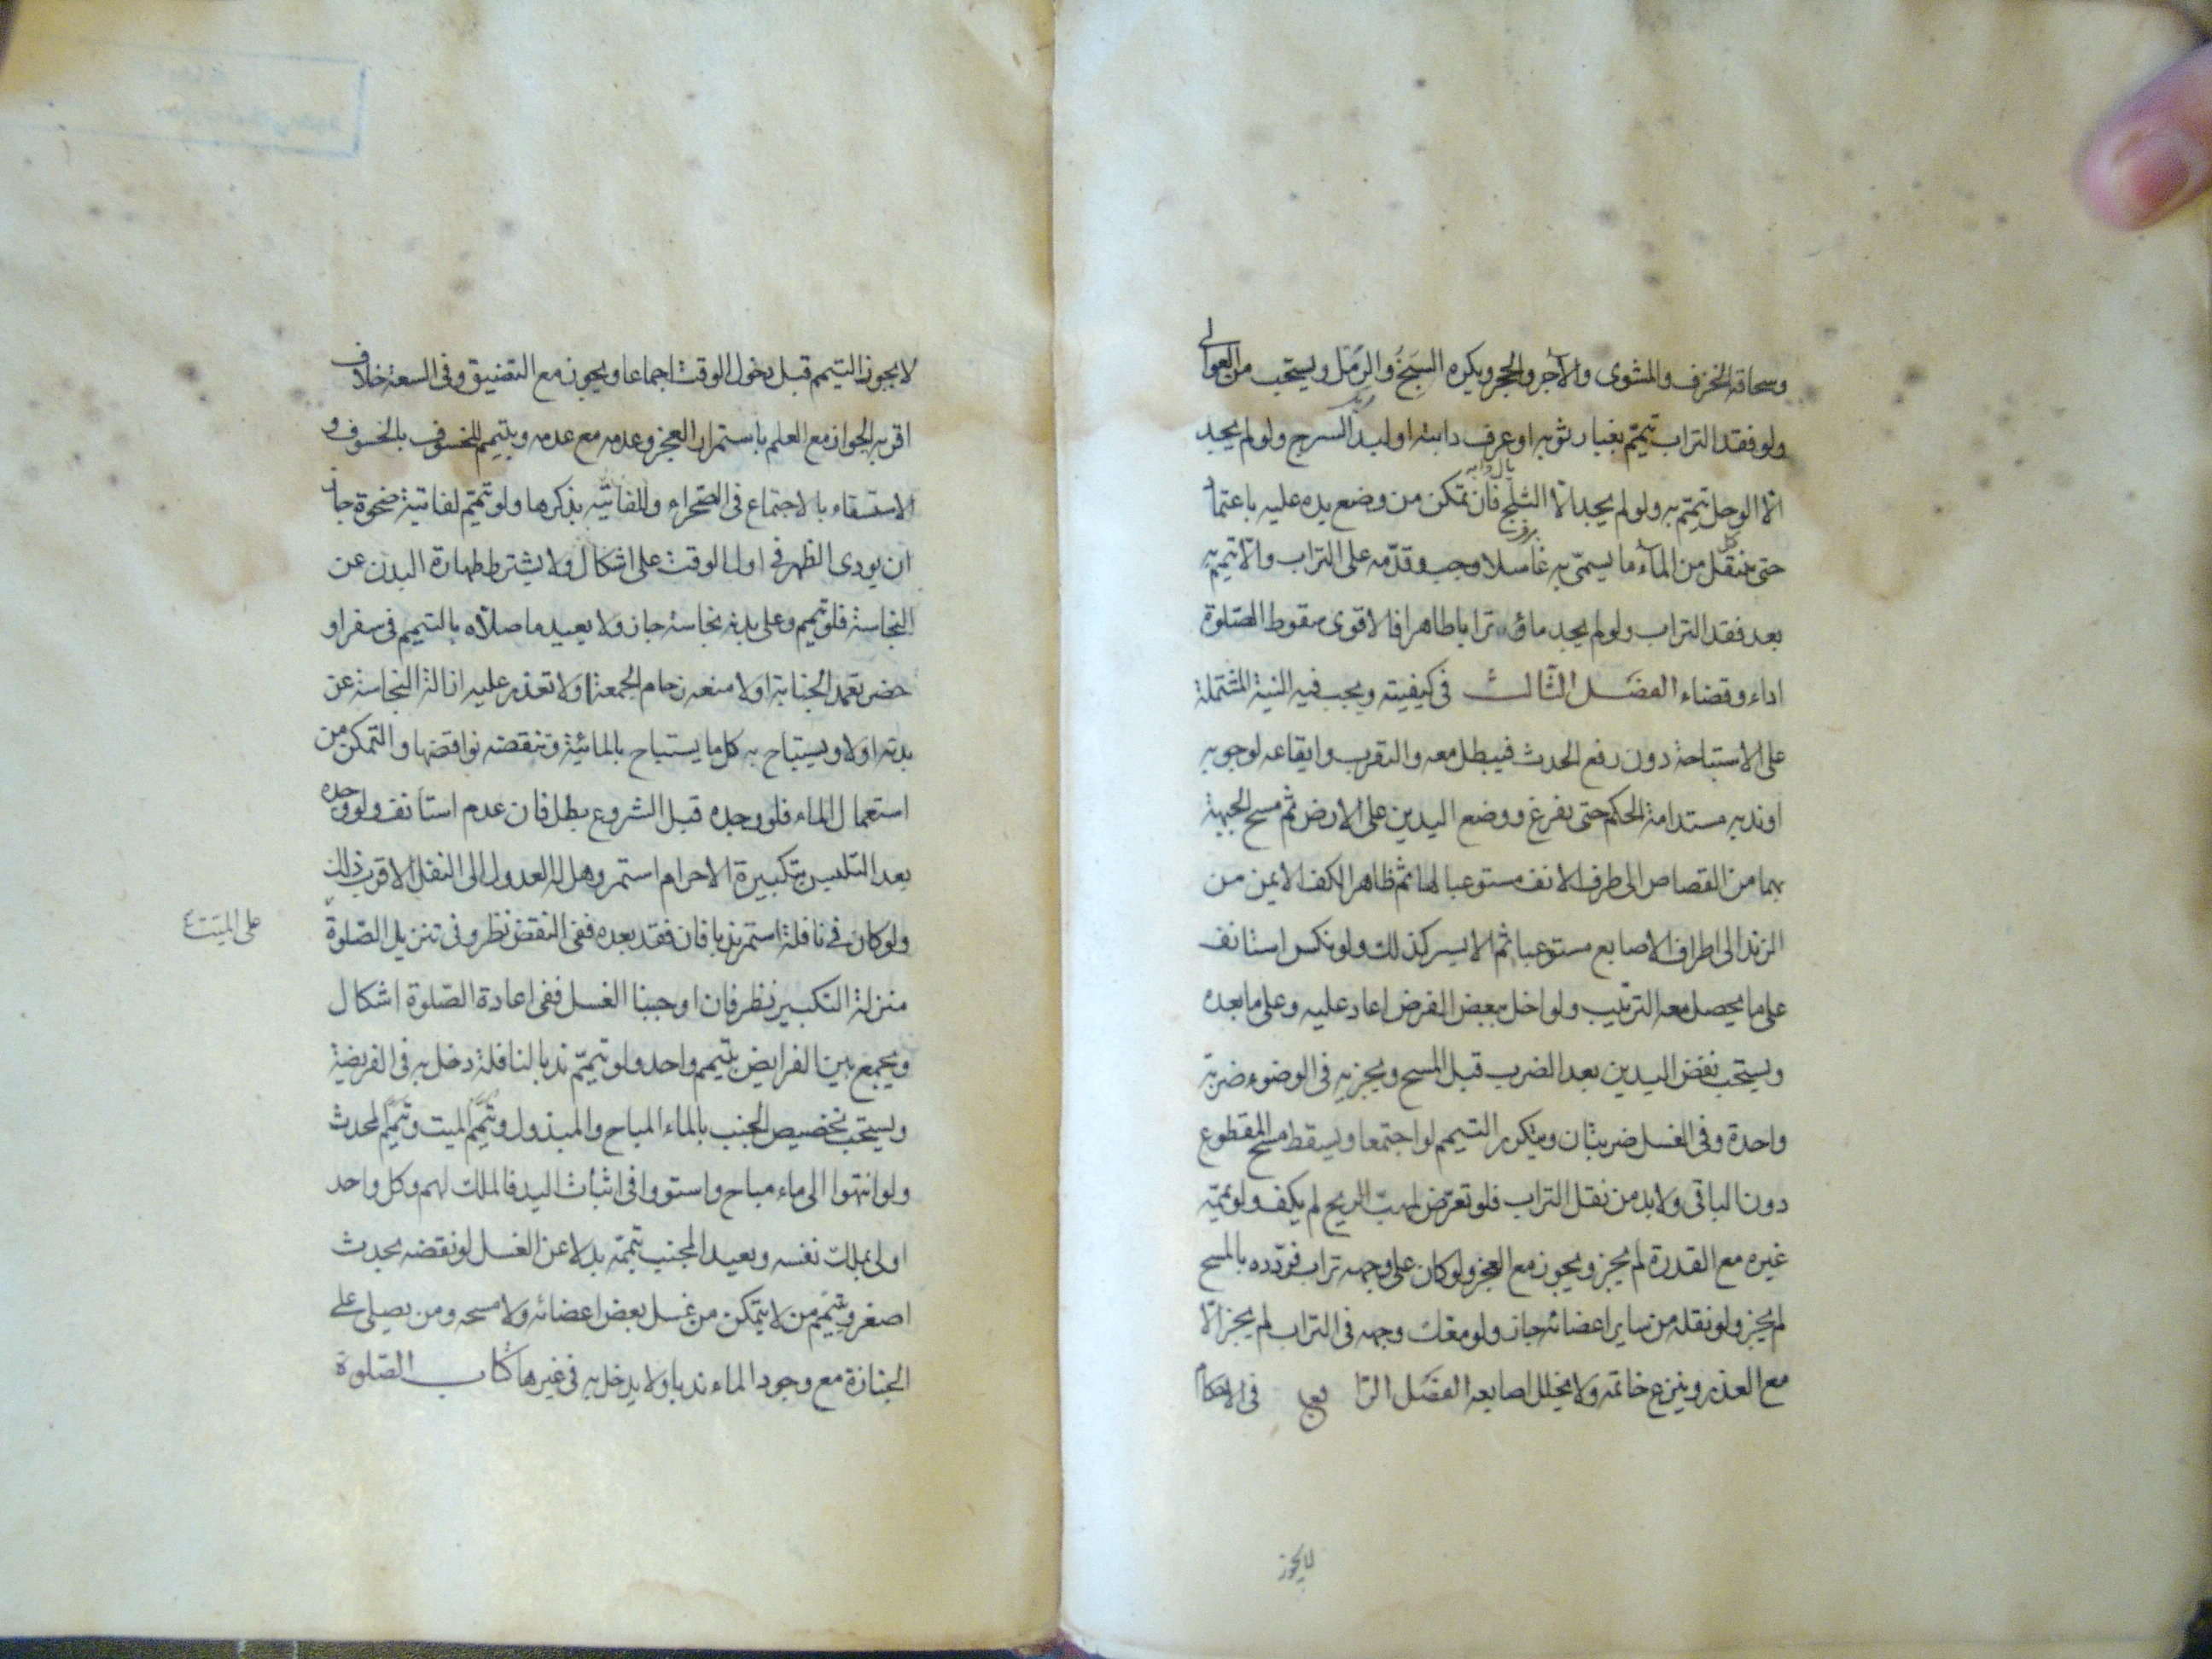 وسحاقة الخزف والمشوى والآجر والحجر ويكره السبخ والرمل ويستحب من العوالى
ولو فقد التراب تيمّم بغبار ثوبه او عرف دابته او لبد السرج ولو لم يجد
الّا الوحل تيمّم به ولو لم يجد الّا الثلج فان تمكن من وضع يده عليه باعتماد
حتى ينتقل من الماء ما يسمّى به غاسلا وجب وقدّمه على التراب والّا تيمّم به
بعد فقد التراب ولو لم يجد ماء و ترابا طاهرا فالاقوى سقوط الصّلوة
اداء وقضاء الفصل الثّالث فى كيفيته ويجب فيه النية المشتملة
على الاستباحة دون رفع الحدث فيبطل معه والتقرب وايقاعه لوجوبه
او ندبه مستدامة الحكم حتى يفرغ ووضع اليدين على الارض ثم مسح الجبهة
بهما من القصاص الى طرف الانف مستوعبا لها ثم ظاهر الكف الايمن من
الزند الى اطراف الاصابع مستوعبا ثم الايسر كذلك ولو نكس استانف
على ما يحصل معه الترتيب ولو اخل ببعض الفرض اعاد عليه وعلى ما بعده
ويستحب نفض اليدين بعد الضرب قبل المسح ويجزيه فى الوضوء ضربة
واحدة وفى الغسل ضربتان ويتكرر التيمم لو اجتمعا ويسقط مسح المقطوع
دون الباقى ولابد من نقل التراب فلو تعرّض لمهبّ الريح لم يكف ولو يمّمه
غيره مع القدرة لم يجز ويجوز مع العجز ولو كان على وجهه تراب فردّده بالمسح
لم يجز ولو نقله من ساير اعضائه جاز ولو معك وجهه فى التراب لم يجز الّا
مع العذر وينزع خاتمه ولا يخلل اصابعه الفصل الرّابع فى الاحكام
لا يجوز
لا يجوز التيمم قبل دخول الوقت اجماعا ويجوز مع التضيق وفى السعة خلاف
اقربه الجواز مع العلم باستمرار العجز وعدمه مع عدمه ويتيمم للخسوف بالخسوف و
الاستسقاء بالاجتماع فى الصّحراء وللفائتة بذكرها ولو تيمّم لفائتة ضحوة جاز
ان يودى الظهر فى اول الوقت على اشكال ولا يشترط طهارة البدن عن
النجاسة فلو تيمم وعلى بدنه نجاسة جاز ولا يعيد ما صلّاه بالتيمم فى سفر او
حضر تعمد الجنابة او لا منعه زحام الجمعة او لا تعذر عليه ازالة النجاسة عن
بدنه او لا ويستباح به كل ما يستباح بالمائية وتنقضه نواقضها والتمكن من
استعمال الماء فلو وجده قبل الشروع بطل فان عدم استأنف ولو وجده
بعد التلبس بتكبيرة الاحرام استمر وهل له العدول الى النفل الاقرب ذلك
ولو كان فى نافلة استمر ندبا فان فقد بعده ففى النقض نظر وفى تنزيل الصّلوة
على الميت
منزلة التكبير نظر فان اوجبنا الغسل ففى اعادة الصّلوة اشكال
ويجمع بين الفرايض بتيمم واحد ولو تيمّم ندبا لنافلة دخل به فى الفريضة
ويستحب تخصيص الجنب بالماء المباح والمبذول وتيمّم الميت وتيمّم المحدث
ولو انتهوا الى ماء مباح واستووا فى اثبات اليد فالملك لهم وكل واحد
اولى بملك نفسه ويعيد المجنب تيممه بدلا عن الغسل لو نقضه بحدث
اصغر ويتيمم من لا يتمكن من غسل بعض اعضائه ولا مسحه ومن يصلى على
الجنازة مع وجود الماء ندبا ولا يدخل به فى غيرها كتاب الصّلوة